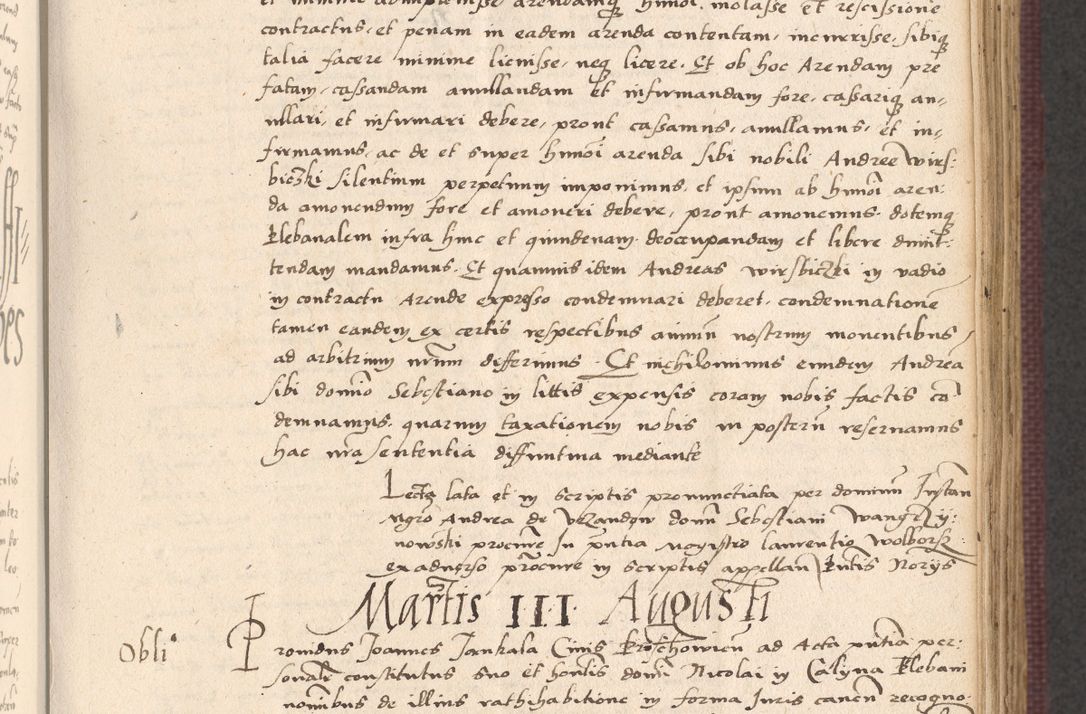 et minime adimplevisse arendamq hmoi. molasse et rescissione
contractus, et penam in eadem arenda contentam, incurrisse, sibiq
talia facere minime licuisse, neq licere. Et ob hoc Arendam pre
fatam, cassandam annullandam et infirmandam fore, cassariq an-
ullari, et infirmari debere, prout cassamus, anullamus, et in-
firmamus, ac de et super hmoi arenda sibi nobili Andree Wirs:
biczki silentium perpetuum imponimus, et ipsum ab hmoi aren:
da amonendum fore et amoneri debere, prout amonemus. dotemq
Plebanalem infra hinc et quindenam deoccupandam et libere dimit:
tendam mandamus. Et quamvis idem Andreas Wirsbiczki in vadio
in contractu Arende expresso condemnari deberet, condemnatione
tamen eandem ex certis respectibus animum nostrum monentibus
ad arbitrium nrum differimus. Et nichilominus eundem Andrea
sibi domino Sebestiano in littis expensis coram nobis factis co
demnamus. quarum taxationem nobis in posterum reservamus
hac nra sententia diffinitiva mediante
Lecta lata et in scriptis pronunctiata per dominum Instan
Mgro Andrea de domini Sebestiani
nowski procure In pntia Magistro laurentio Wolborsz
ex adverso procure in scriptis appellan Pntis Norijs
Martis III Augusti
Obli
Promdus Joannes Jankala Civis Proschowien ad Acta pntia per:
sonalr constitutus suo et honlis domini Nicolai in Calyna Plebani
nominibus de illius rathihabitione in forma Juris canen recogno: